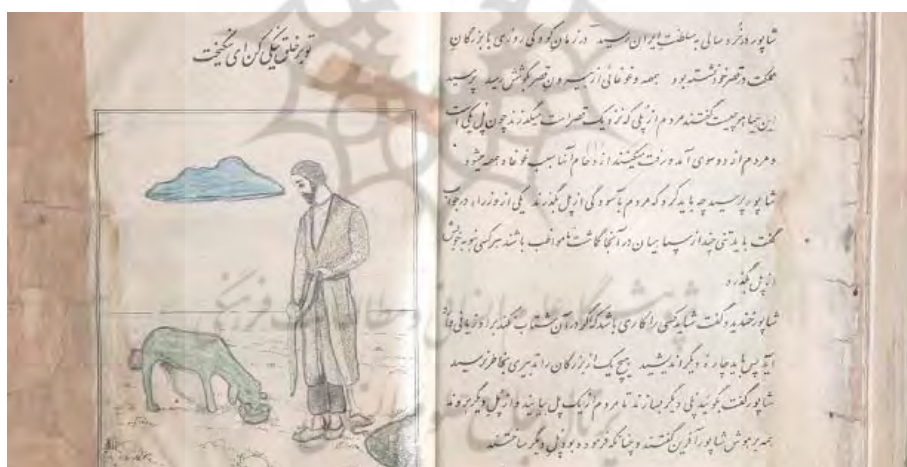 شاپور در خرد سالی به سلطنت ایران رسید در زمان کودکی روزی با بزرگان
مملکت در قصر خود نشسته بود همهمه و غوغائی از بیرون قصر بگوشش رسید پرسید
این هیاهو چیست گفتند مردم از پلی که نزدیک قصر است میگذرند چون پل یکی است
و مردم از دو سوی آمد و رفت میکنند از دحام آنها سبب غوغا و همهمه میشود
شاپور پرسید چه باید کرد که مردم بآسودگی از پل بگذرند یکی از وزراء در جواب
گفت باید تنی چند از سپاهیان در آنجا گماشت تا مواظب باشند هر کسی نوبه خویش
از پل بگذرد
شاپور خندید و گفت شاید کسی را کاری باشد که اگر در آن شتاب نکند برا و زیانی وارد
آید پس باید چاره دیگر اندیشید هیچ یک از بزرگان را تدبیری بخاطر نرسید
شاپور گفت بگوئید پلی دیگر بسازند تا مردم از یک پل بیایند و از پل دیگر بروند
همه بر هوش شاپور آفرین گفتند و چنانکه فرموده بود پلی دیگر ساختند
تو بر خلق نیکی کن ای نیکبخت